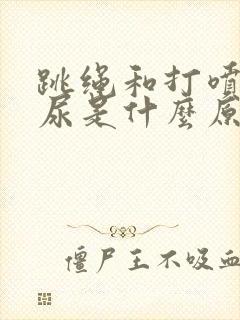 跳绳和打喷
尿是什麼原
僵尸王不吸血